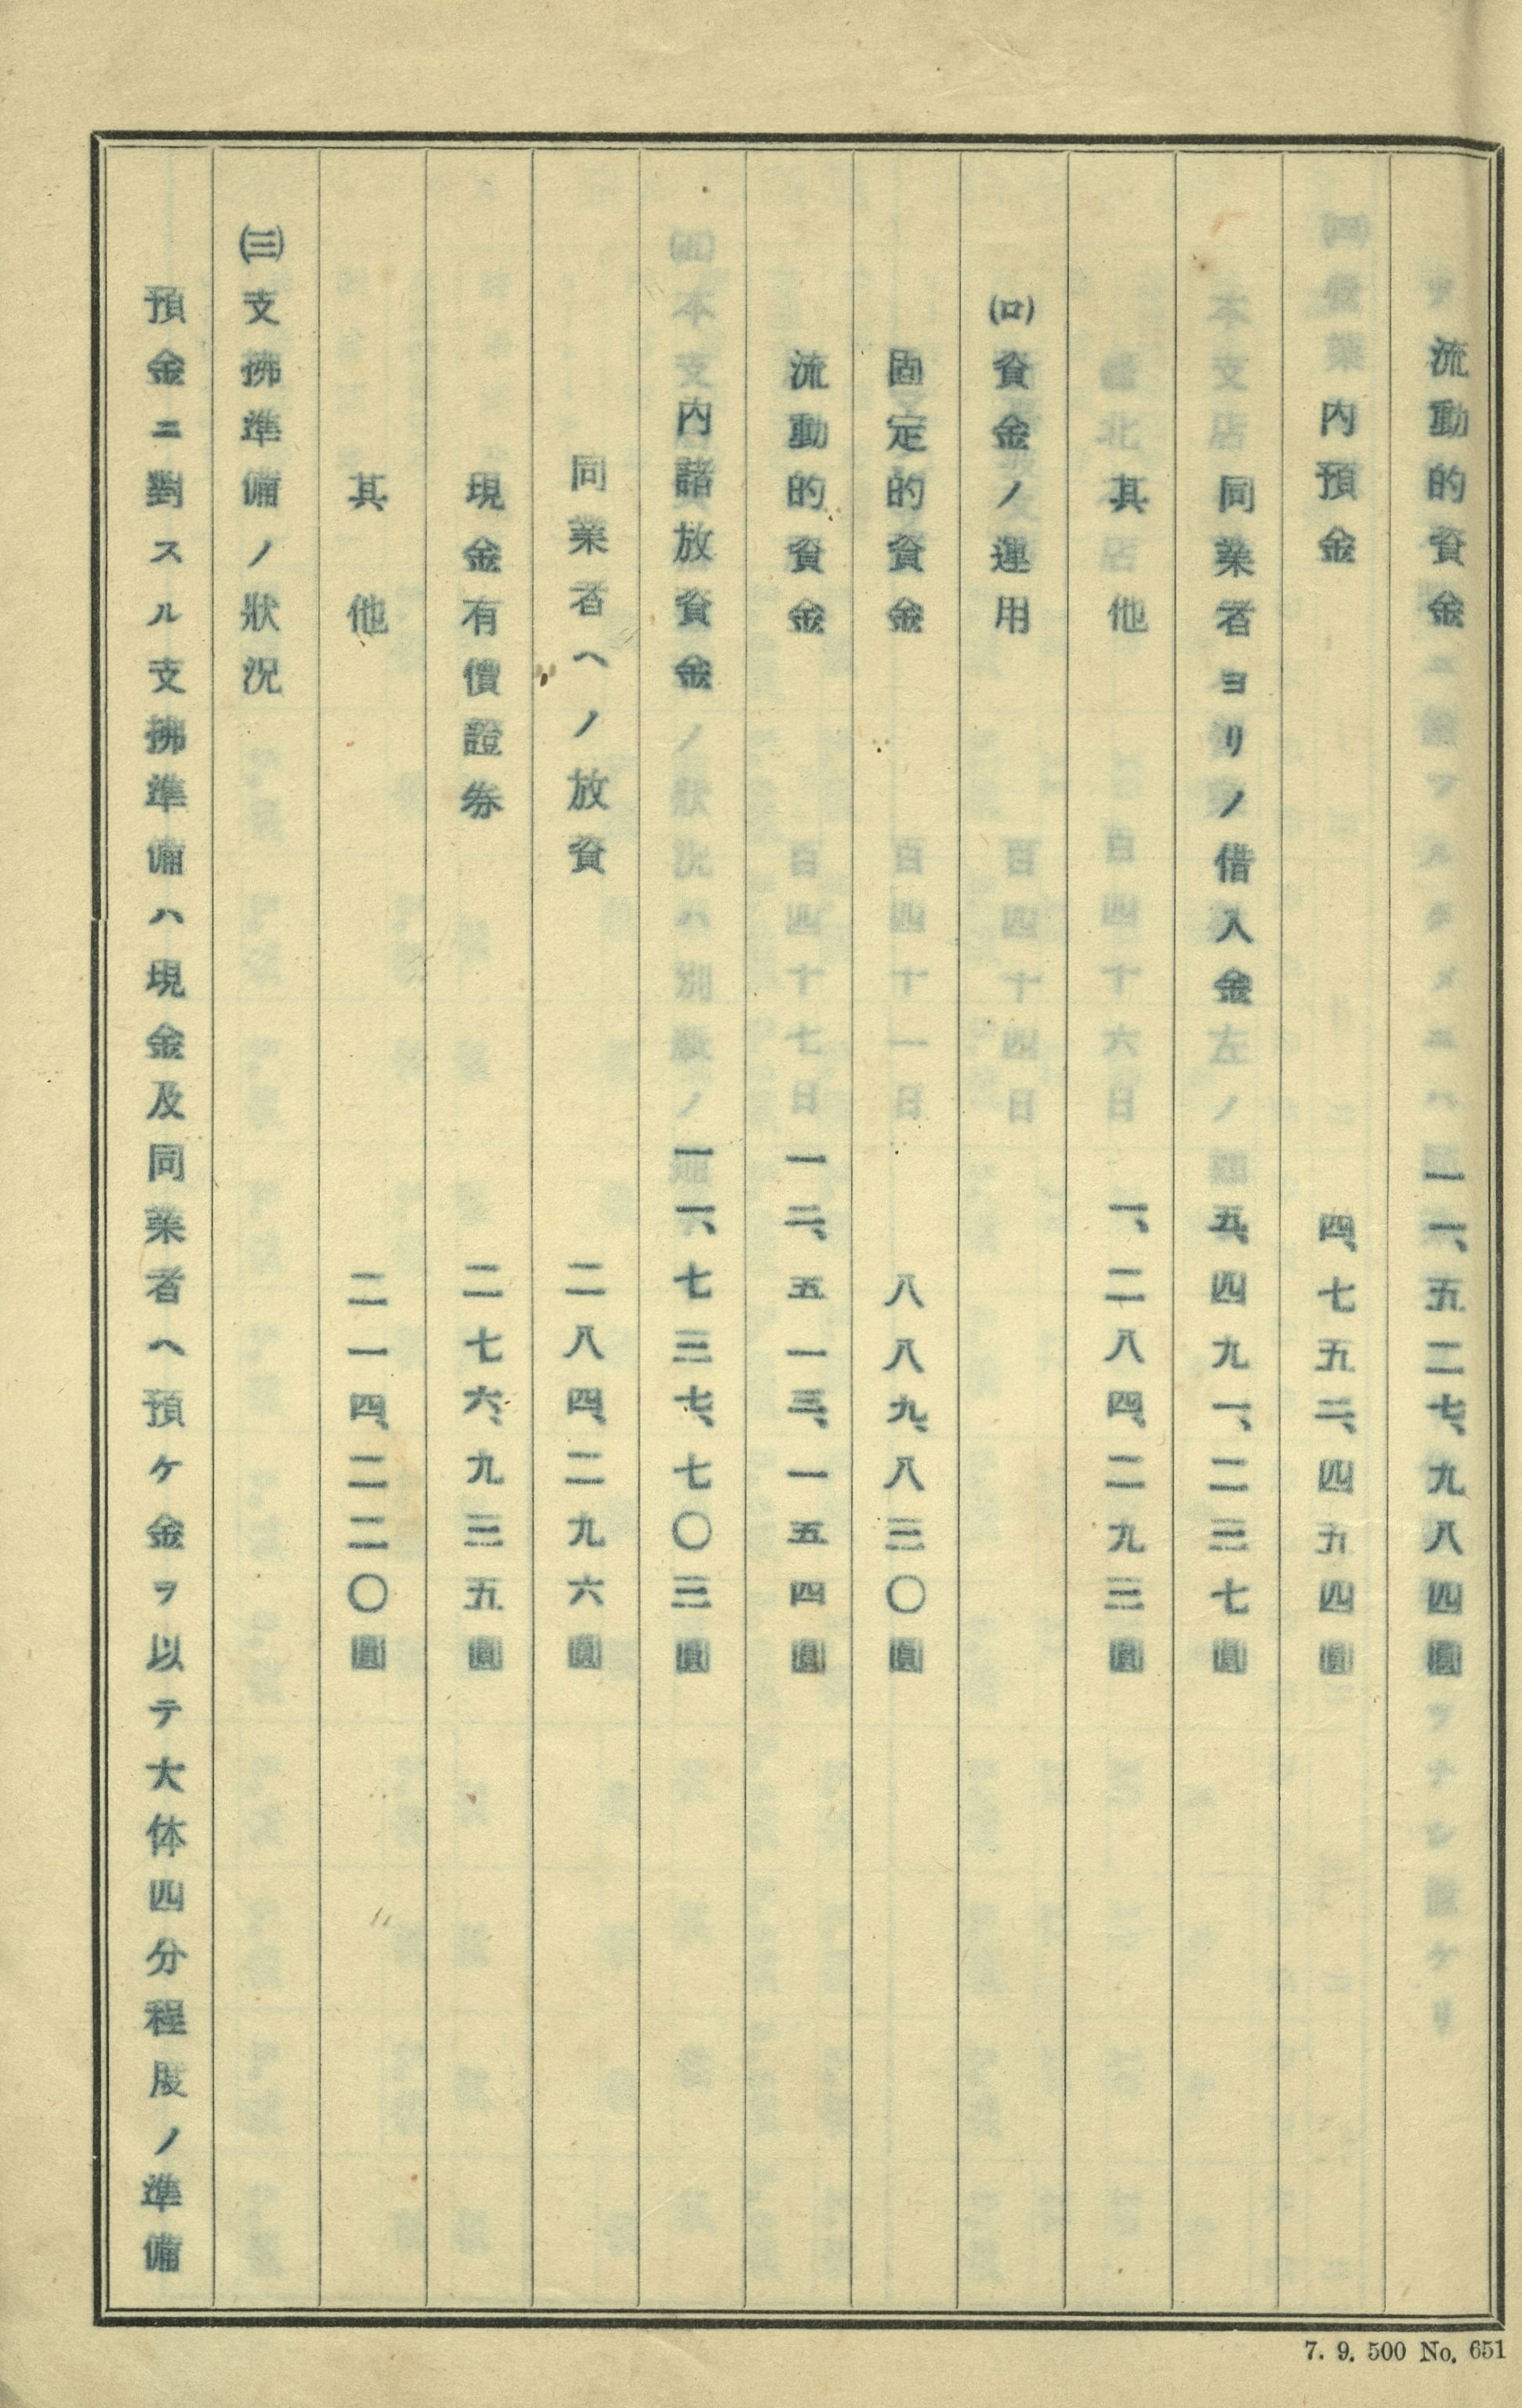 流動的資金　一一、五二七、九八四圓
内預金　四、七五二、四五四圓
同業者ヨリノ借入金　五、四九一、二三七圓
其他　一、二八四、二九三圓
(ロ)資金ノ運用
固定的資金　八八九、八三〇圓
流動的資金　一二、五一三、一五四圓
内諸放資金　一一、七三七、七〇三圓
同業者ヘノ放資　二八四、二九六圓
現金有價證券　二七六、九三五圓
其他　二一四、二二〇圓
㈢支拂準備ノ狀況
預金ニ對スル支拂準備ハ現金及同業者ヘ預ケ金ヲ以テ大体四分程度ノ準備
7. 9. 500 No. 651